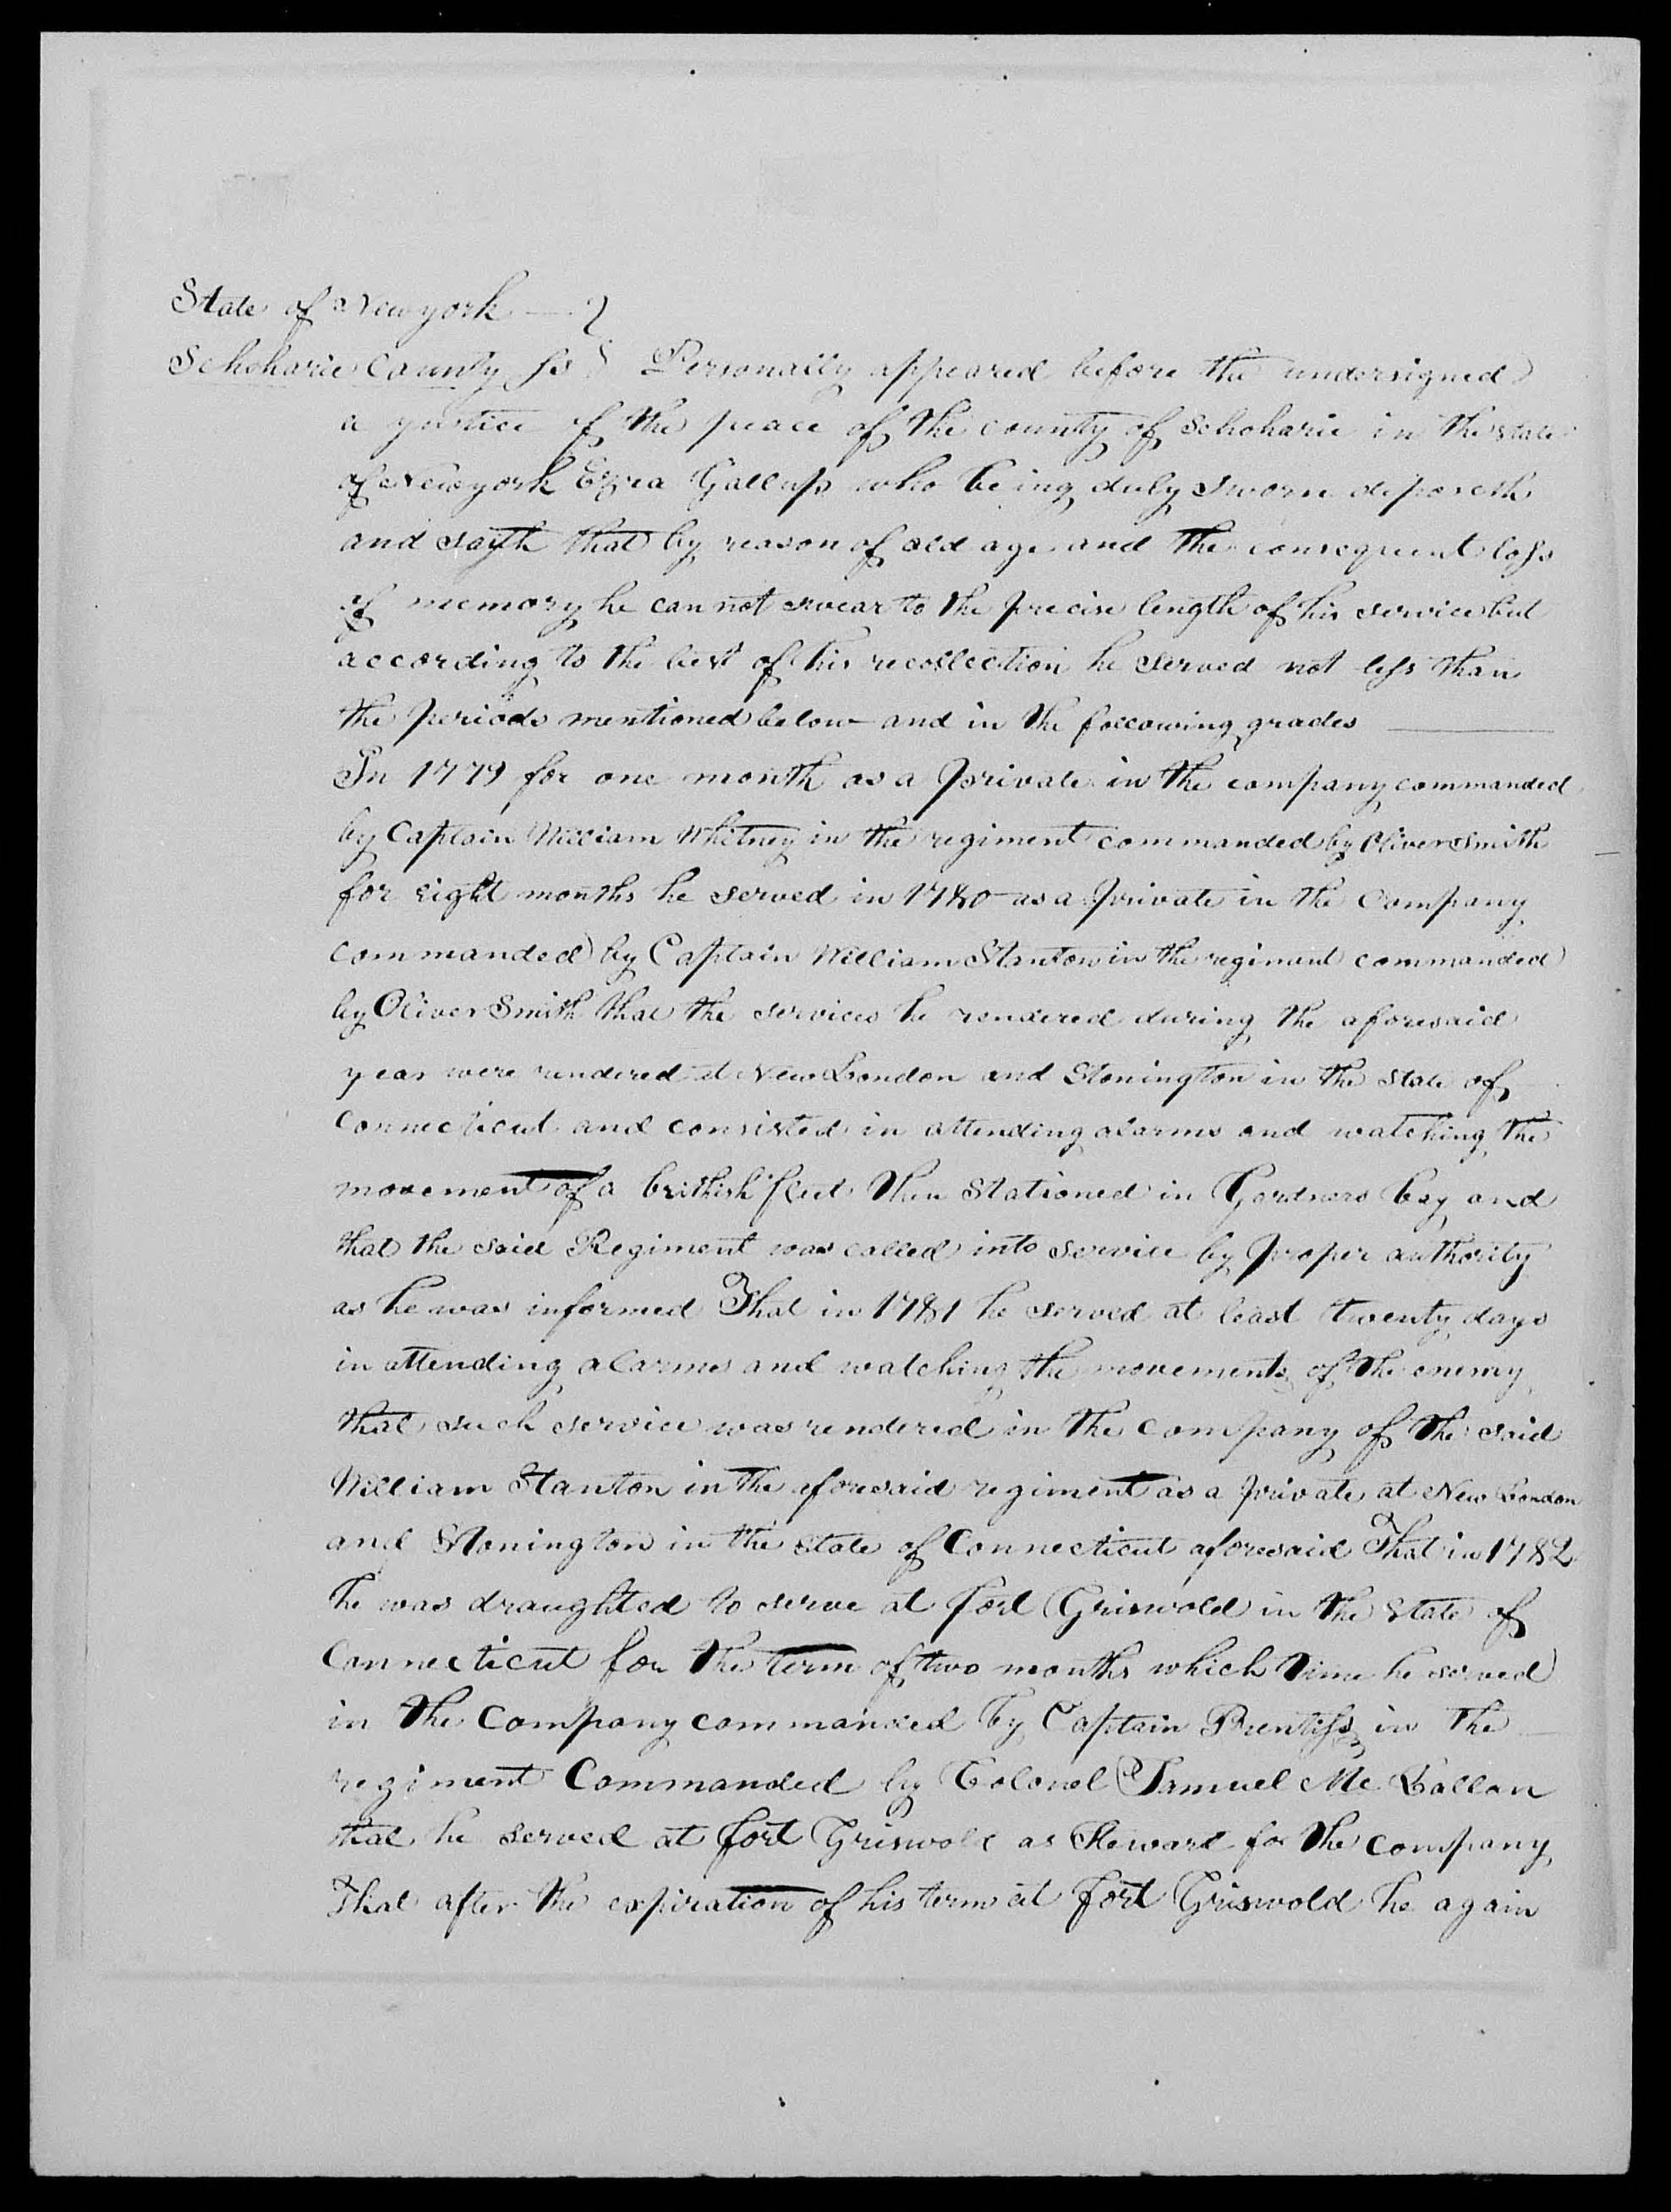 State of Newyork
Schoharie County ss Personally appeared before the undersigned
a justice of the peace of the county of Schoharie in the state
of Newyork Ezra Gallup who being duly sworn deposeth
and sayth that by reason of old age and the consequent loss
of memory he can not swear to the precise length of his service but
according to the best of his recollection he served not less than
the periods mentioned below and in the following grades
In 1779 for one month as a private in the company commanded
by Captain William Whitney in the regiment commanded by Oliver Smith
for eight months he served in 1780 as a private in the Company
commanded by Captain William Stanton in the regiment commanded
by Oliver Smith that the services he rendered during the aforesaid
year were rendered at New London and Stonington in the State of
Connecticut and consisted in attending alarms and watching the
movement of a brithish fleet then Stationed in Gardners bay and
that the said Regiment was called into service by proper authority
as he was informed That in 1781 he served at least twenty days
in attending alarms and watching the movements of the enemy
that such service was rendered in the company of the said
William Stanton in the aforesaid regiment as a private at New London
and Stonington in the State of Connecticut aforesaid That in 1782
he was draughted to serve at fort Griswold in the State of
Connecticut for the term of two months which time he served
in the Company commanded by Captain Prentiss in the
regiment Commanded by Colonel Samuel Mc Lallan
that he served at fort Griswold as Steward for the company
That after the expiration of his term at fort Griswold he again